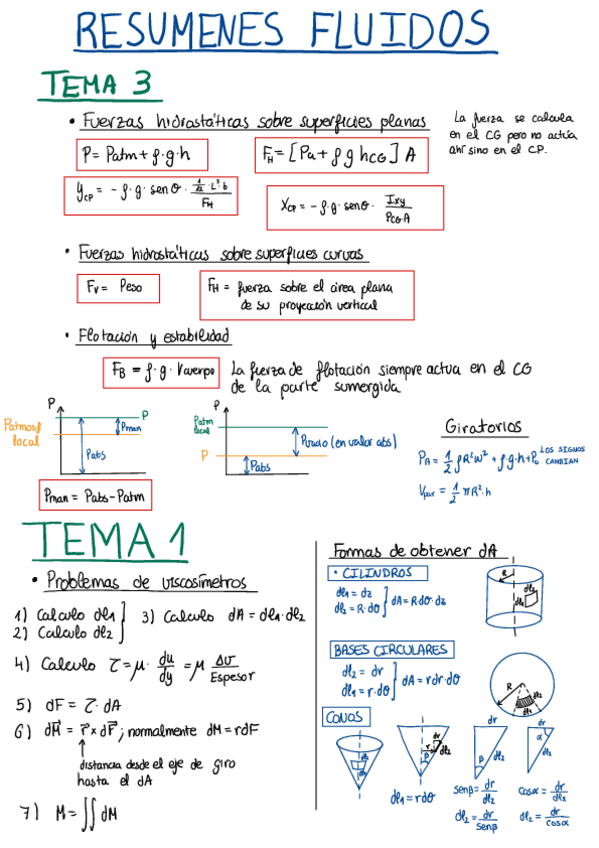 RESUMENES FLUIDOS
TEMA 3
• Fuerzas hidrostáticas sobre superficies planas
La fuerza se calcula
en el CG pero no actúa
ahí sino en el CP.
P = Patm + ρ·g·h
F_H = [Pa + ρ g h_CG] A
y_CP = - ρ·g· sen θ · (1/12 · L³ b)/F_H
X_CP = - ρ·g· senθ · Ixy/(P_CG·A)
• Fuerzas hidrostáticas sobre superficies curvas
F_V = Peso
F_H = fuerza sobre el área plana
de su proyección vertical
• Flotación y estabilidad
F_B = ρ·g·Vcuerpo
La fuerza de flotación siempre actua en el CG
de la parte sumergida
P
Patmosf
local
P
Pman
Pabs
P
Patm
local
P
Pvacío (en valor abs)
Pabs
Pman = Pabs - Patm
Giratorios
P_A = 1/2 ρR²ω² + ρ·g·h + P₀
LOS SIGNOS
CAMBIAN
Vpar = 1/2 πR²·h
TEMA 1
• Problemas de viscosímetros
1) Calculo dl₁
2) Calculo dl₂
3) Calculo dA = dl₁·dl₂
4) Calculo τ = μ · du/dy = μ Δv/Espesor
5) dF = τ·dA
6) dM = r x dF ; normalmente dM = rdF
distancia desde el eje de giro
hasta el dA
7) M = ∬ dM
Formas de obtener dA
• CILINDROS
dl₁ = dz
dl₂ = R·dθ
dA = R·dθ·dz
R
dl₂
dl₁
BASES CIRCULARES
dl₂ = dr
dl₁ = r·dθ
dA = r dr·dθ
R
dl₂
dl₁
CONOS
dl₁ = rdθ
r
dr
dl₂
β
dr
β
dl₂
senβ = dr/dl₂
dl₂ = dr/senβ
dr
α
dl₂
cosα = dr/dl₂
dl₂ = dr/cosα